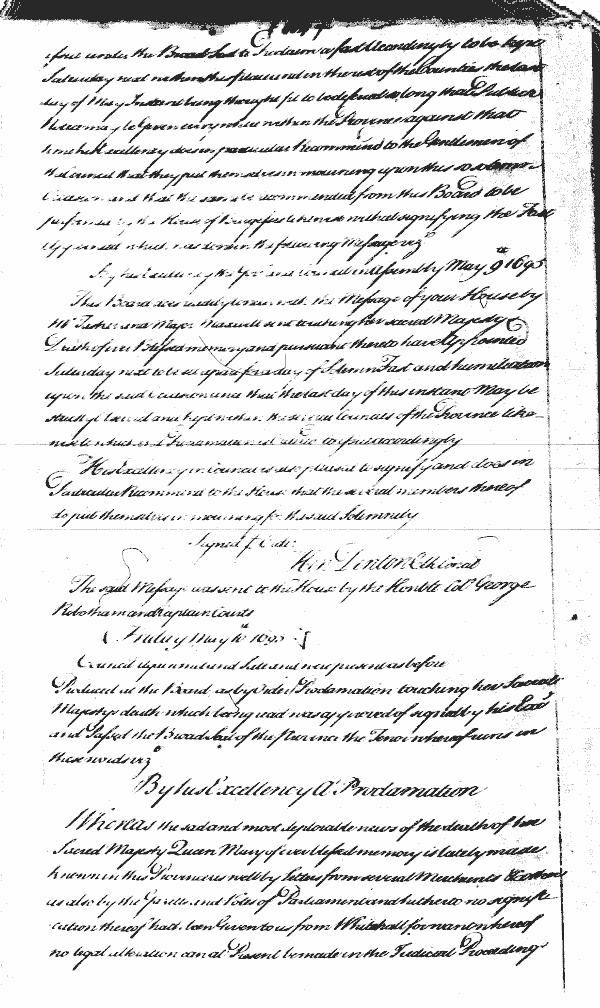 issue under the Broad Seal to Proclaim a fast Accordingly to be kept
Saturday next within the and in the rest of the Counties the last
day of May Instant being thought fit to be deferred so long that
may be Given every where within the Province against that
time his Excellency does in particular Recommend to the Gentlemen of
the Council that they put themselves in mourning upon this so solemn
Occasion and that the same be recommended from this Board to be
performed by the House of Burgesses when signifying the Fast
Appointed which was done in the following Message viz
By his Excellency the Gov and Council in Assembly May 9th 1695
This Board does readily concur with the Message of your House by
Mr Tasker and Major Maxwell sent touching her sacred Majestys
Death of ever Blessed memory and pursuant thereto have Appointed
Saturday next to be set apart for a day of Solemn Fast and humiliation
upon the said Occasion and that the last day of this instant May be
strictly Observed and kept within the several Counties of the Province like-
wise to which end Proclamation is to issue accordingly
His Excellency in Council is also pleased to signify and does in
Particular Recommend to the House that the several members thereof
do put themselves in mourning for the said Solemnity
Signed p Order
Hen Denton Clk Council
The said Message was sent to the House by the Honble Col George
Robotham and Captain Courts
Friday May 10th 1695
Council Again met and Satt and were present as before
Produced at the Board as by Order Proclamation touching her Sacred
Majestys death which being read was approved of signed by his Excy
and Passed the Broad Seal of the Province the Tenor whereof runs in
these words viz
By his Excellency A Proclamation
Whereas the sad and most deplorable news of the death of her
Sacred Majesty Queen Mary of ever blessed memory is lately made
known in this Province as well by letters from several Merchants
as also by the Gazette and Votes of Parliament and hitherto no signifi
cation thereof hath been Given to us from Whitehall for want whereof
no legal alteration can at Present be made in the Judicial Proceedings